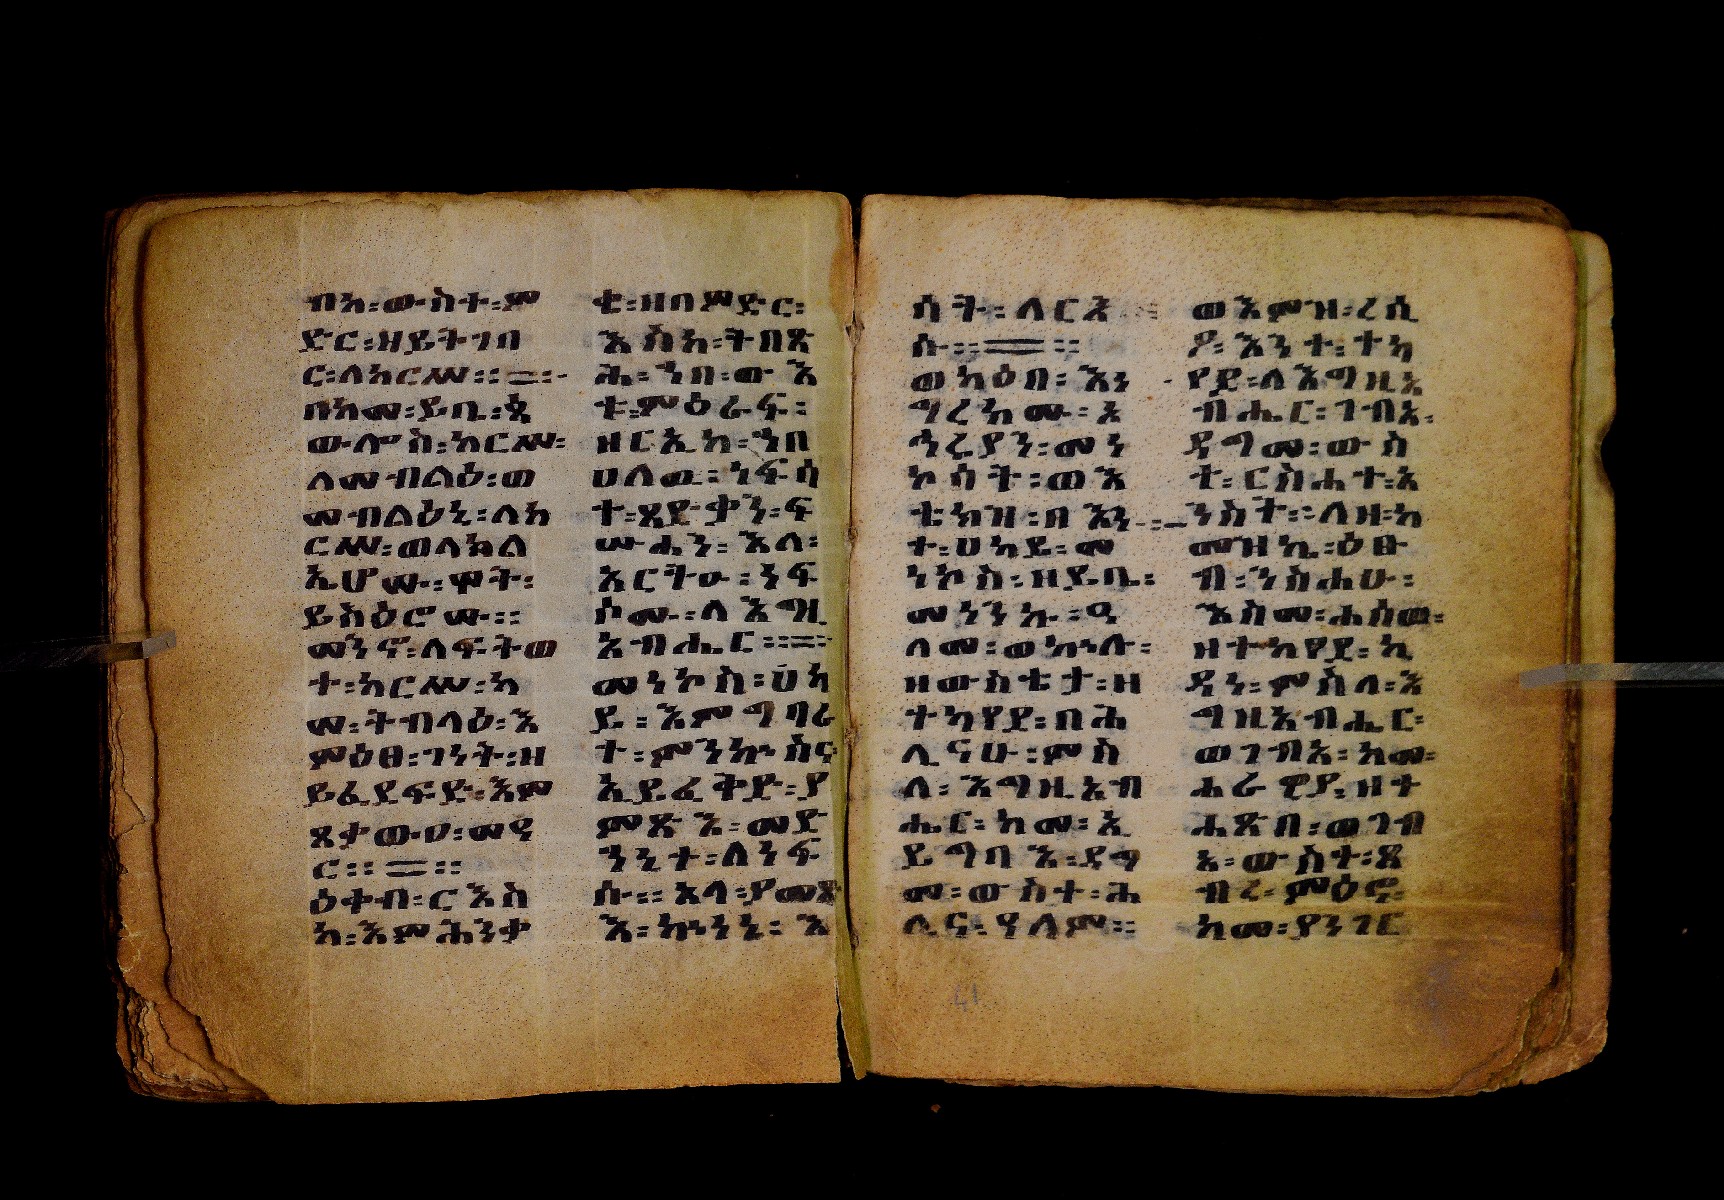 ብእ፡ውስተ፡ም
ድር፡ዘይትገብ
ር፡ለከርሡ፡፡=፡-
በከመ፡ይቤ፡ጳ
ውሎስ፡ከርሥ፡
ለመብልዕ፡ወ
መብልዕኒ፡ለከ
ርሥ፡ወለክል
ኤሆሙ፡ሞት፡
ይስዕሮሙ፡፡
መኑኑ፡ለፍትወ
ተ፡ከርሥ፡ካ
መ፡ትብላዕ፡እ
ምዕፀ፡ገነት፡ዘ
ይፈደፍድ፡እም
ጸታውሀ፡መዓ
ር፡፡=፡፡
ዕቀብ፡ርእስ
ከ፡እምሕንቃ
ቄ፡ዘበምድር፡
እስከ፡ትበጽ
ሕ፡ኀበ፡ውእ
ቱ፡ምዕራፍ፡
ዘርኢከ፡ኀበ
ሀለወ፡ነፍሳ
ተ፡ጻድቃን፡ፍ
ሡሓን፡እለ፡
አርትዑ፡ነፍ
ሶሙ፡ለእግዚ
አብሔር፡፡=፡
መነኮስ፡ሀካ
ይ፡እምግባረ
ት፡ምንኵስና
ኢይፈቅድ፡ያ
ምጽእ፡መድ
ኀኒተ፡ለነፍ
ሱ፡፡አላ፡ያመጽ
እ፡ኵነኔ፡እ
ሳት፡ለርእ
ሱ፡፡=፡፡
ወካዕበ፡እን
ግረከሙ፡አ
ኀረያን፡መነ
ኮሳት፡ወእ
ቲክዝ፡በእን
ተ፡ሀካይ፡መ
ነኮስ፡ዘይቤ፡
መነንኩ፡ዓ
ለመ፡ወኵሉ፡
ዘውስቴታ፡ዘ
ተካየደ፡በሕ
ሊናሁ፡ምስ
ለ፡እግዚአብ
ሔር፡ከመ፡ኢ
ይግባእ፡ዳግ
መ፡ውስተ፡ሕ
ሊና፡ዓለም፡፡
ወእምዝ፡ረሲ
ዖ፡እንተ፡ተካ
የደ፡ለእግዚአ
ብሔር፡ገብአ፡
ዳግመ፡ውስ
ተ፡ርስሐተ፡አ
ንስት፡፡ለዘ፡ከ
መዝኬ፡ዕፀ
ብ፡ንስሐሁ፡
እስመ፡ሐሰወ፡
ዘተካየደ፡ኪ
ዳነ፡ምስለ፡እ
ግዚአብሔር፡
ወገብአ፡ከመ፡
ሐራውያ፡ዘተ
ሐጽበ፡ወገብ
አ፡ውስተ፡ጸ
ብረ፡ምዕሮ፡
ከመ፡ያንገር